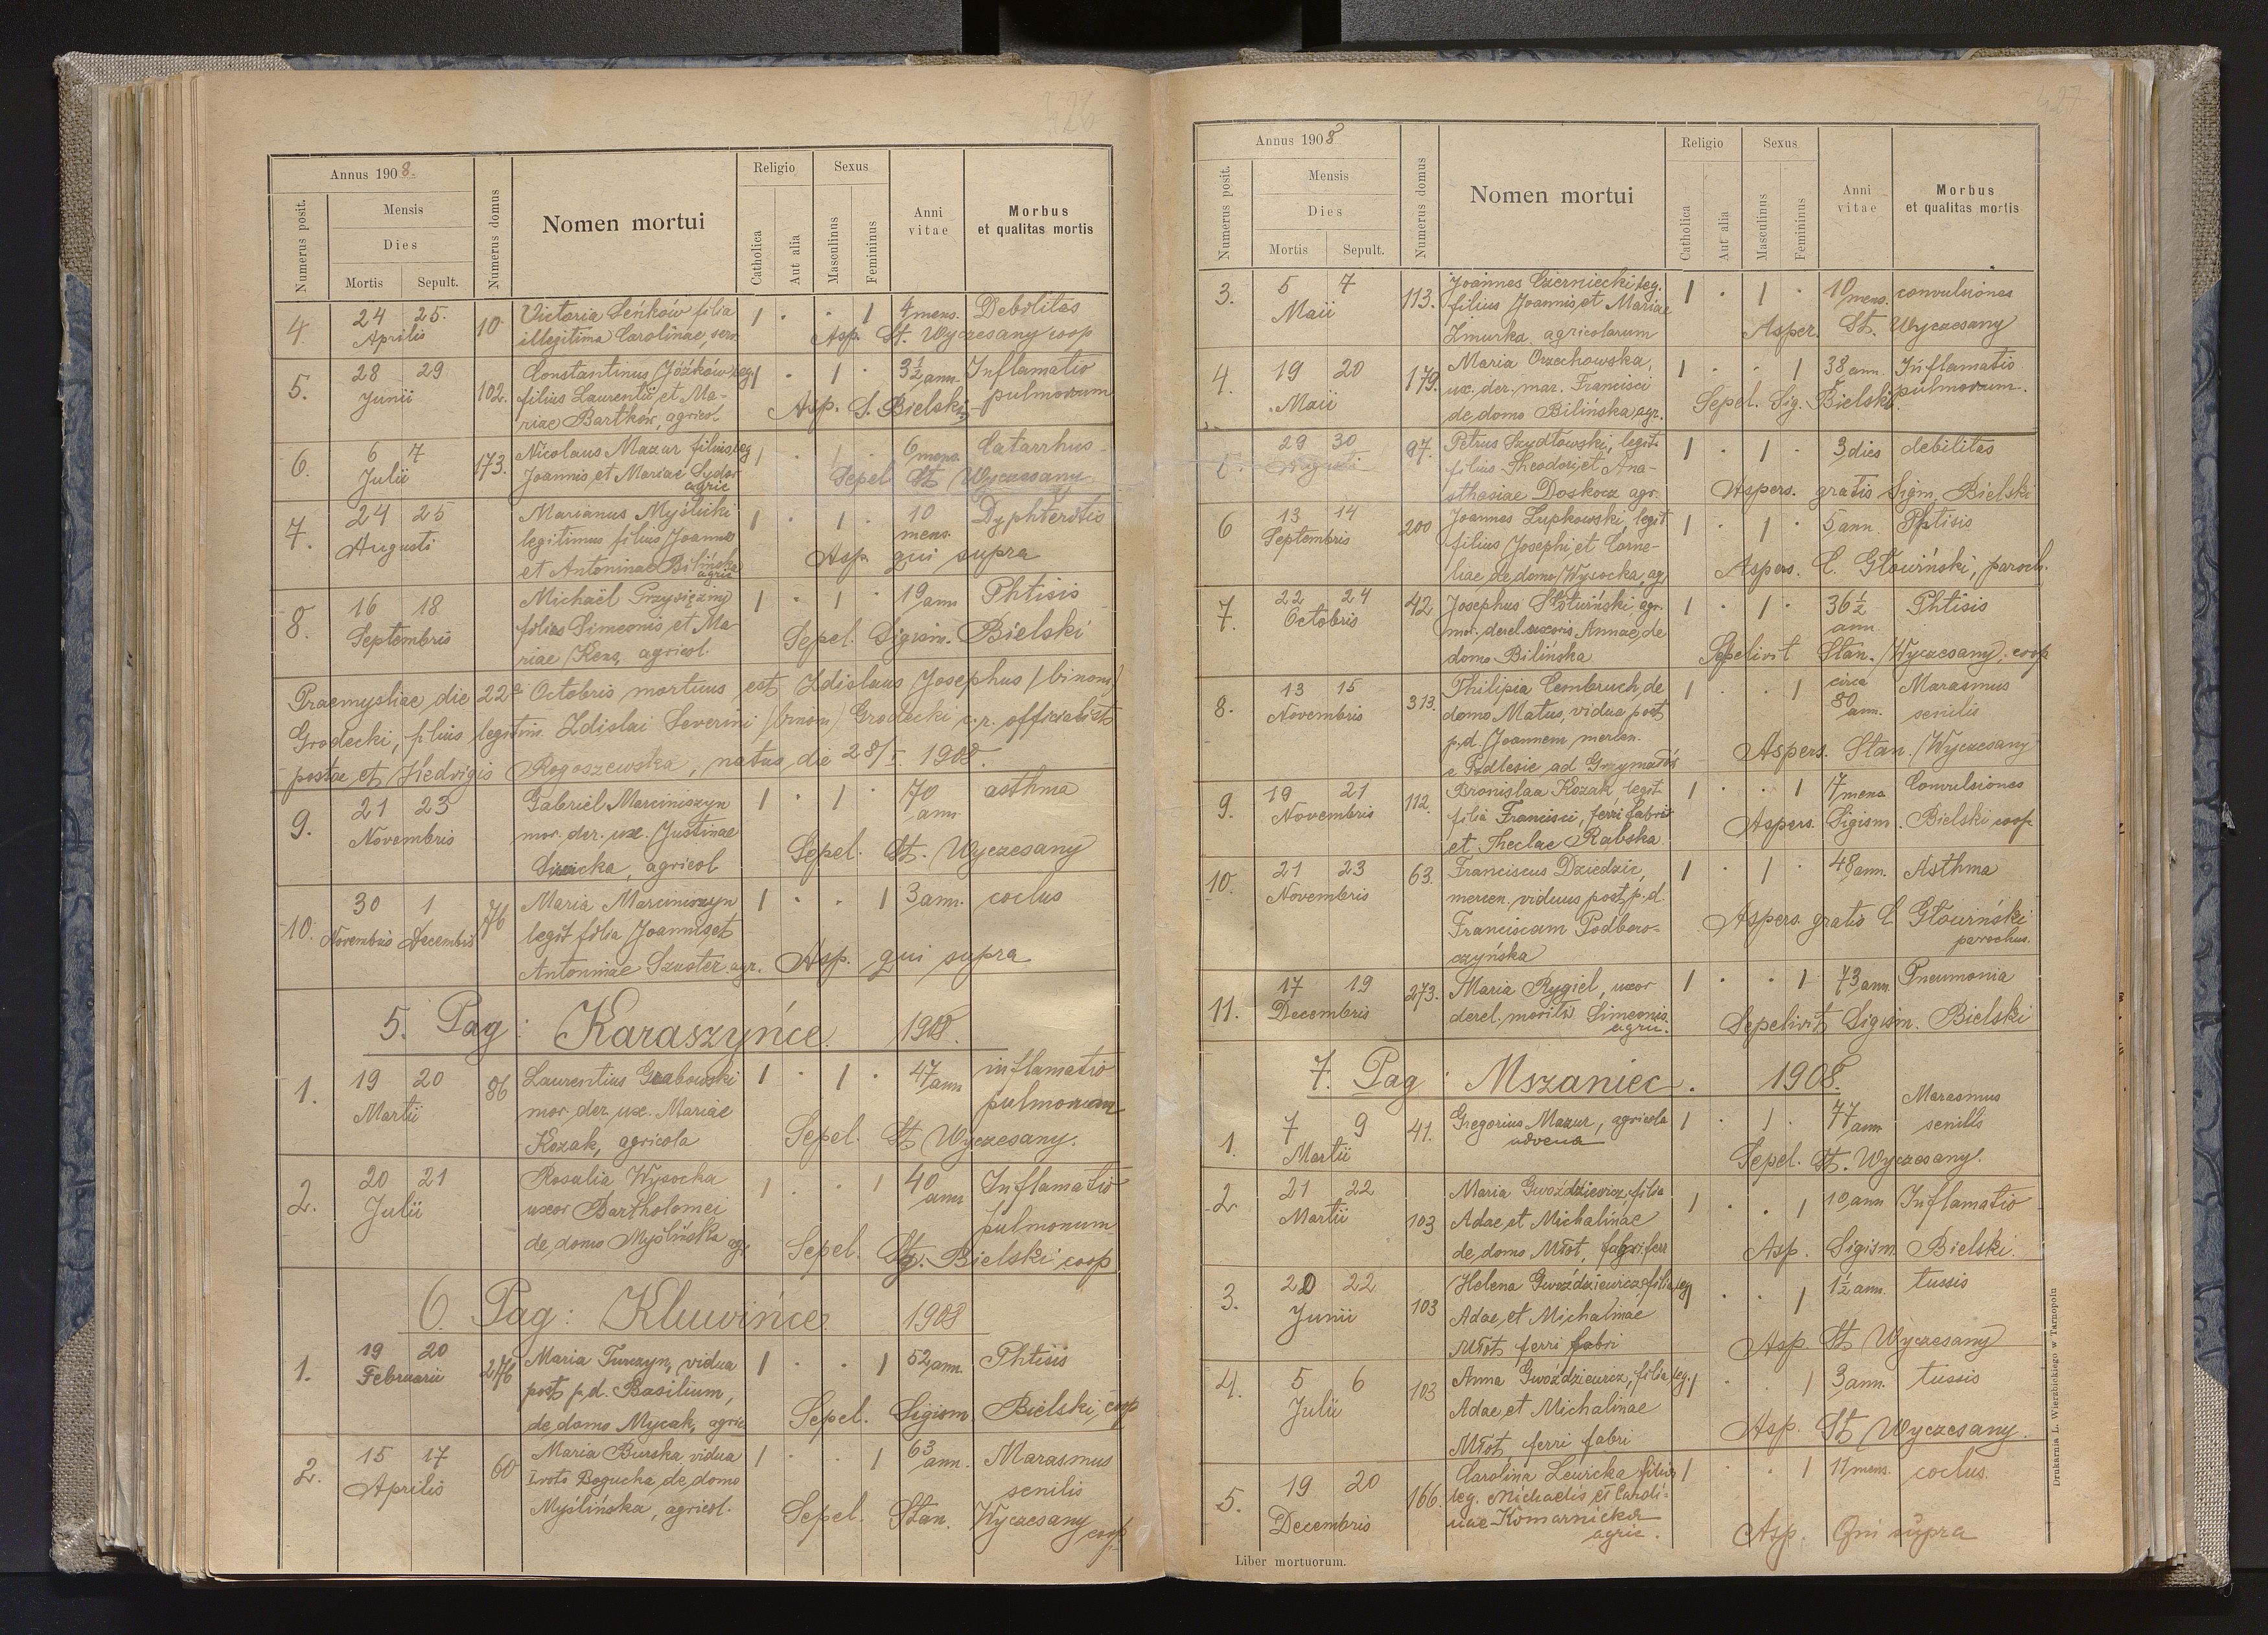 426
Annus 1908.
Numerus posit.
Mensis
Dies
Mortis
Sepult.
Numerus domus
Nomen mortui
Religio
Catholica
Aut alia
Sexus
Masculinus
Femininus
Anni vitae
Morbus et qualitas mortis
4. 24 25. Aprilis 10.
Victoria Seńków filia
illegitima Carolinae, serv.
1 . . 1 4 mens. Debilitas
Asp. St. Wyczesany coop
5. 28 29 Junii 102.
Constantinus Jóźków leg
filius Laurentii et Ma-
riae Bartków, agricol.
1 . 1 . 3½ ann. Inflamatio pulmonum
Asp. S. Bielski
6. 6 7 Julii 173.
Nicolaus Mazur filius leg
Joannis et Mariae Sydor
agric
1 . 1 . 6 mens. Catarrhus
Sepel St Wyczesany
7. 24 25 Augusti
Marianus Myśliński
legitimus filius Joannis
et Antoninae Bilińska
agric
1 . 1 . 10 mens. Dyphteritis
Asp. qui supra
8. 16 18 Septembris
Michaël Przysiężny
filius Simeonis et Ma
riae Kens, agricol.
1 . 1 . 19 ann Phtisis
Sepel. Sigism. Bielski
Praemysliae die 22a Octobris mortuus est Zdislaus Josephus (binom)
Grodecki, filius legitim. Zdislai Severini (binom) Grodecki c.r. officialist
postae et Hedvigis Rogoszewska, natus die 28/I. 1908.
9. 21 23 Novembris
Gabriel Marciniszyn
mor. der. ux. Justinae
agricol
1 . 1 . 70 ann. asthma
Sepel. St. Wyczesany
10. 30 1 Novembris Decembris 76
Maria Marciniszyn
legit filia Joannis et
Antoninae Szuster agr.
1 . . 1 3 ann. coclus
Asp. qui supra
5. Pag: Karaszyńce. 1908.
1. 19 20 Martii 86
Laurentius Grabowski
mor. der. ux. Mariae
Kozak, agricola
1 . 1 . 47 ann inflamatio pulmonum
Sepel. St Wyczesany.
2. 20 21 Julii
Rosalia Wysocka
uxor Bartholomei
de domo Myślińska agr.
1 . . 1 40 ann Inflamatio pulmonum
Sepel. Sg. Bielski coop
6. Pag: Kluwińce 1908
1. 19 20 Februarii 276
Maria Turczyn, vidua
post p.d. Basilium,
de domo Mycak, agric
1 . . 1 52 ann. Phtisis
Sepel. Sigism. Bielski, coop
2. 15 17 Aprilis 60
Maria Burska, vidua
Ivoto Bogucka, de domo
Myślińska, agricol.
1 . . 1 63 ann. Marasmus senilis
Sepel. Stan. Wyczesany coop.
427
Annus 1908
Numerus posit.
Mensis
Dies
Mortis
Sepult.
Numerus domus
Nomen mortui
Religio
Catholica
Aut alia
Sexus
Masculinus
Femininus
Anni vitae
Morbus et qualitas mortis
3. 5 7 Maii 113.
Joannes Czerniecki leg.
filius Joannis et Mariae
Zmurka agricolarum
1 . 1 . 10 mens. convulsiones
Asper. St. Wyczesany
4. 19 20 Maii 179.
Maria Orzechowska,
ux. der. mar. Francisci
de domo Bilińska agr.
1 . . 1 38 ann. Inflamatio pulmonum.
Sepel. Sig. Bielski
5. 29 30 Augusti 97.
Petrus Szydłowski, legit.
filius Theodori et Ana-
sthasiae Doskocz agr.
1 . 1 . 3 dies debilitas
Aspers. gratis Sigm. Bielski
6 13 14 Septembris 200
Joannes Łupkowski, legit
filius Josephi et Corne-
liae de domo Wysocka, ag.
1 . 1 . 5 ann. Phtisis
Aspers. C. Głowiński, paroch.
7. 22 24 Octobris 42
Josephus Słotwiński, agr.
mar. derel. uxoris Annae, de
domo Bilińska
1 . 1 . 36½ ann. Phtisis
Sepelivit Stan. Wyczesany, coop
8. 13 15 Novembris 313.
Philipia Cembruch, de
domo Matus, vidua post
p.d. Joannem mercen.
e Podlesie ad Grzymałów
1 . . 1 circa 80 ann. Marasmus senilis
Aspers. Stan. Wyczesany
9. 19 21 Novembris 112.
Bronislaa Kozak, legit
filia Francisci, ferri fabri
et Theclae Rabska
1 . . 1 7 mens Convulsiones
Aspers. Sigism. Bielski coop
10. 21 23 Novembris 63.
Franciscus Dziedzic,
mercen. viduus post p.d.
Franciscam Podboro-
czyńska
1 . 1 . 48 ann. Asthma
Aspers. gratis C. Głowiński
parochus.
11. 17 19 Decembris 273.
Maria Rygiel, uxor
derel. mariti Simeonis
agric.
1 . . 1 73 ann. Pneumonia
Sepelivit Sigism. Bielski
7. Pag: Mszaniec. 1908.
1. 7 9 Martii 41.
Gregorius Mazur, agricola
advena
1 . 1 . 77 ann Marasmus senilis
Sepel. St. Wyczesany.
2 21 22 Martii 103
Maria Gwoździewicz, filia
Adae et Michalinae
de domo Młot, fabri ferr
1 . . 1 10 ann Inflamatio
Asp. Sigism. Bielski.
3. 20 22 Junii 103
Helena Gwoździewicz filia leg
Adae et Michalinae
Młot ferri fabri
1 . . 1 1½ ann. tussis
Asp. St Wyczesany
4. 5 6 Julii 103
Anna Gwoździewicz, filia leg.
Adae et Michalinae
Młot ferri fabri
1 . . 1 3 ann. tussis
Asp. St Wyczesany.
5. 19 20 Decembris 166.
Carolina Lewicka filia
leg. Michaelis et Caroli-
nae Komarnicka
agric.
1 . . 1 11 mens. coclus.
Asp. Qui supra
Liber mortuorum.
Drukarnia L. Wierzbickiego w Tarnopolu